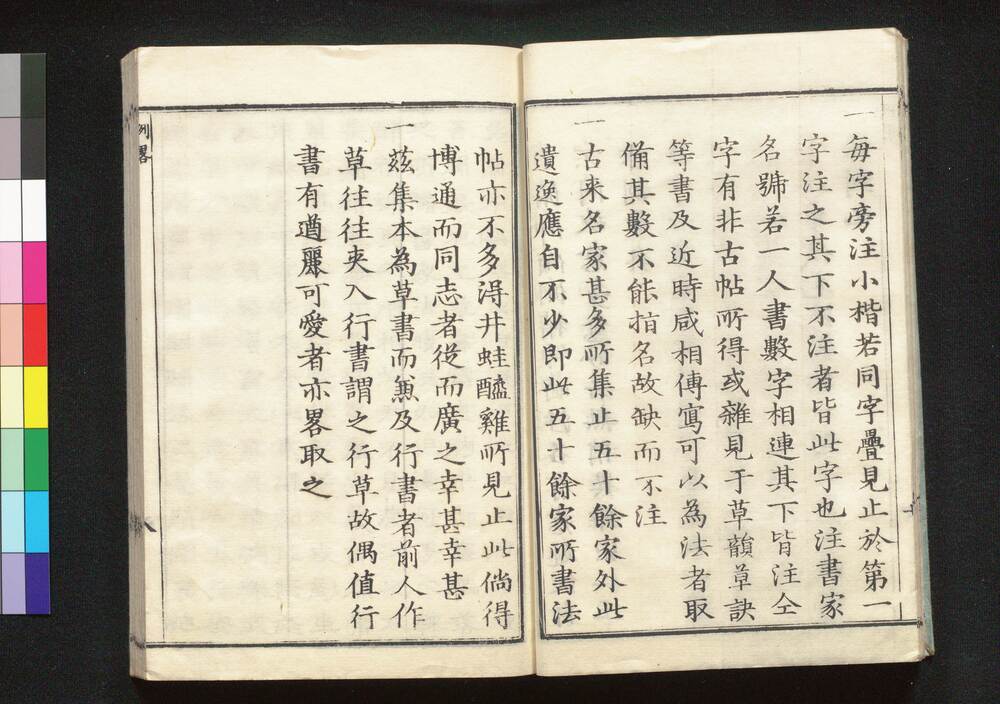 一每字旁注小楷若同字疊見止於第一
字注之其下不注者皆此字也注書家
名號若一人書數字相連其下皆注仝
字有非古帖所得或雜見于草韻草訣
等書及近時咸相傳寫可以為法者取
備其數不能指名故缺而不注
一古来名家甚多所集止五十餘家外此
遺逸應自不少即此五十餘家所書法
帖亦不多淂井蛙醯雞所見止此倘得
博通而同志者從而廣之幸甚幸甚
一茲集本為草書而兼及行書者前人作
草往往夾入行書謂之行草故偶值行
書有遒麗可愛者亦畧取之
例畧
八